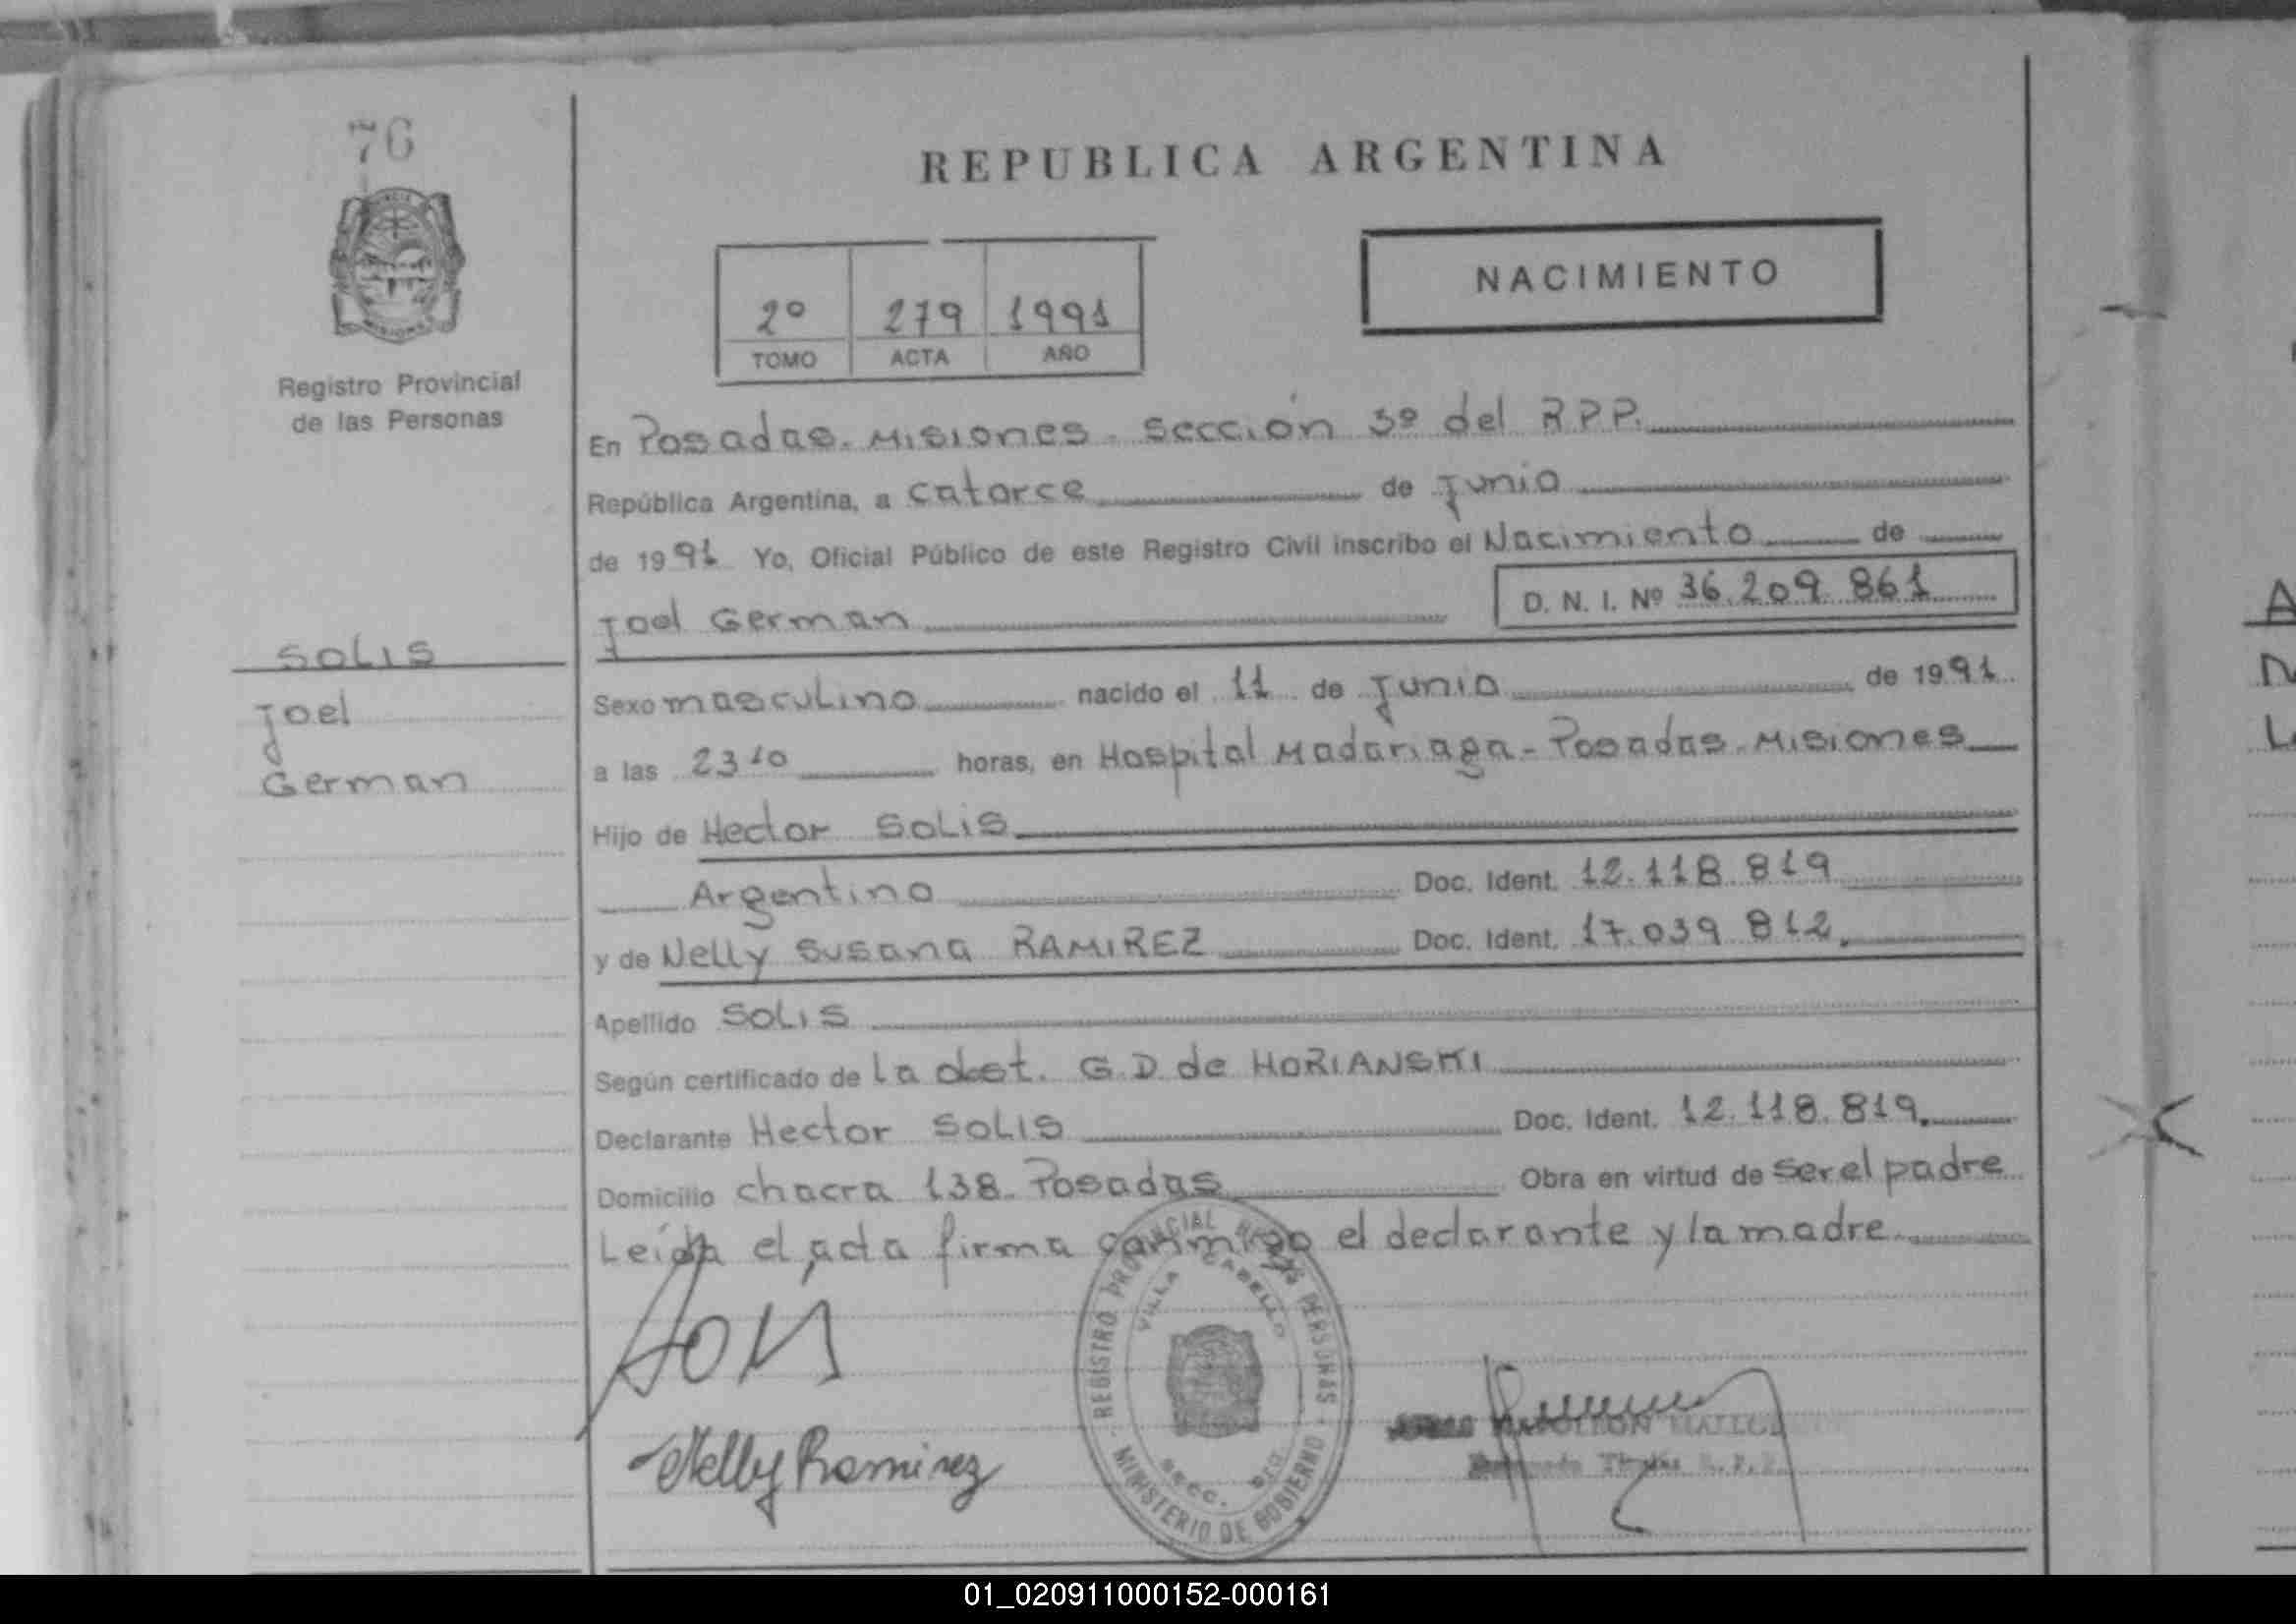 76
REPUBLICA ARGENTINA
NACIMIENTO
2º 279 1991
TOMO ACTA AÑO
Registro Provincial
de las Personas
En Posadas. Misiones - Sección 3º del R.P.P.
República Argentina, a catorce de Junio
de 1991 Yo, Oficial Público de este Registro Civil inscribo el Nacimiento de
Joel German D. N. I. Nº 36.209.861
SOLIS
Joel
German
Sexo masculino nacido el 11 de Junio de 1991
a las 23 10 horas, en Hospital Madariaga - Posadas. Misiones
Hijo de Hector SOLIS
Argentino Doc. Ident. 12.118.819
y de Nelly Susana RAMIREZ Doc. Ident. 17.039.812.
Apellido SOLIS
Según certificado de la obst. G.D de HORIANSKI
Declarante Hector SOLIS Doc. Ident. 12.118.819.
Domicilio chacra 138. Posadas Obra en virtud de ser el padre
Leída el acta firma conmigo el declarante y la madre.
Solis
Nelly Ramirez
REGISTRO PROVINCIAL PERSONAS
VILLA CABELLO
SECC.
MINISTERIO DE GOBIERNO
NAPOLEON
01_020911000152-000161